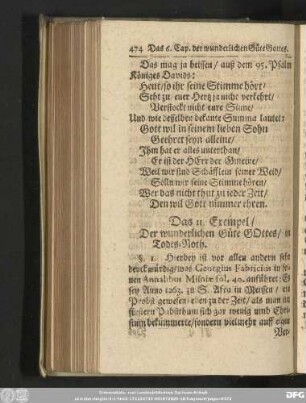 474 Das 6. Cap. der wunderlichen Güte Gottes.
Das mag ja heissen / auß dem 95. Psalm
Königes Davids:
Heut / so ihr seine Stimme hört /
Seht zu euer Hertz ja nicht verkehrt /
Verstockt nicht eure Sinne /
Und wie desselben bekante Summa lautet:
Gott wil in seinem lieben Sohn
Geehret seyn alleine /
Ihm hat er alles unterthan /
Er ist der HErr der Gmeine /
Weil wir sind Schäfflein seiner Weid /
Solln wir seine Stimme hören /
Wer das nicht thut zu jeder Zeit /
Den wil Gott nimmer ehren.
Das 11. Exempel /
Der wunderlichen Güte GOttes / in
Todes-Noth.
§. 1. Hierbey ist vor allen andern sehr
denckwürdig / was Georgius Fabricius in se-
inen Annalibus Misniæ fol. 40. anführet: Es
sey Anno 1263. zu S. Afra in Meissen / ein
Probst gewesen / eben zu der Zeit / als man im
finstern Pabstthum sich gar wenig umb Chri-
stum bekümmerte / sondern vielmehr auff eigne
Ver-